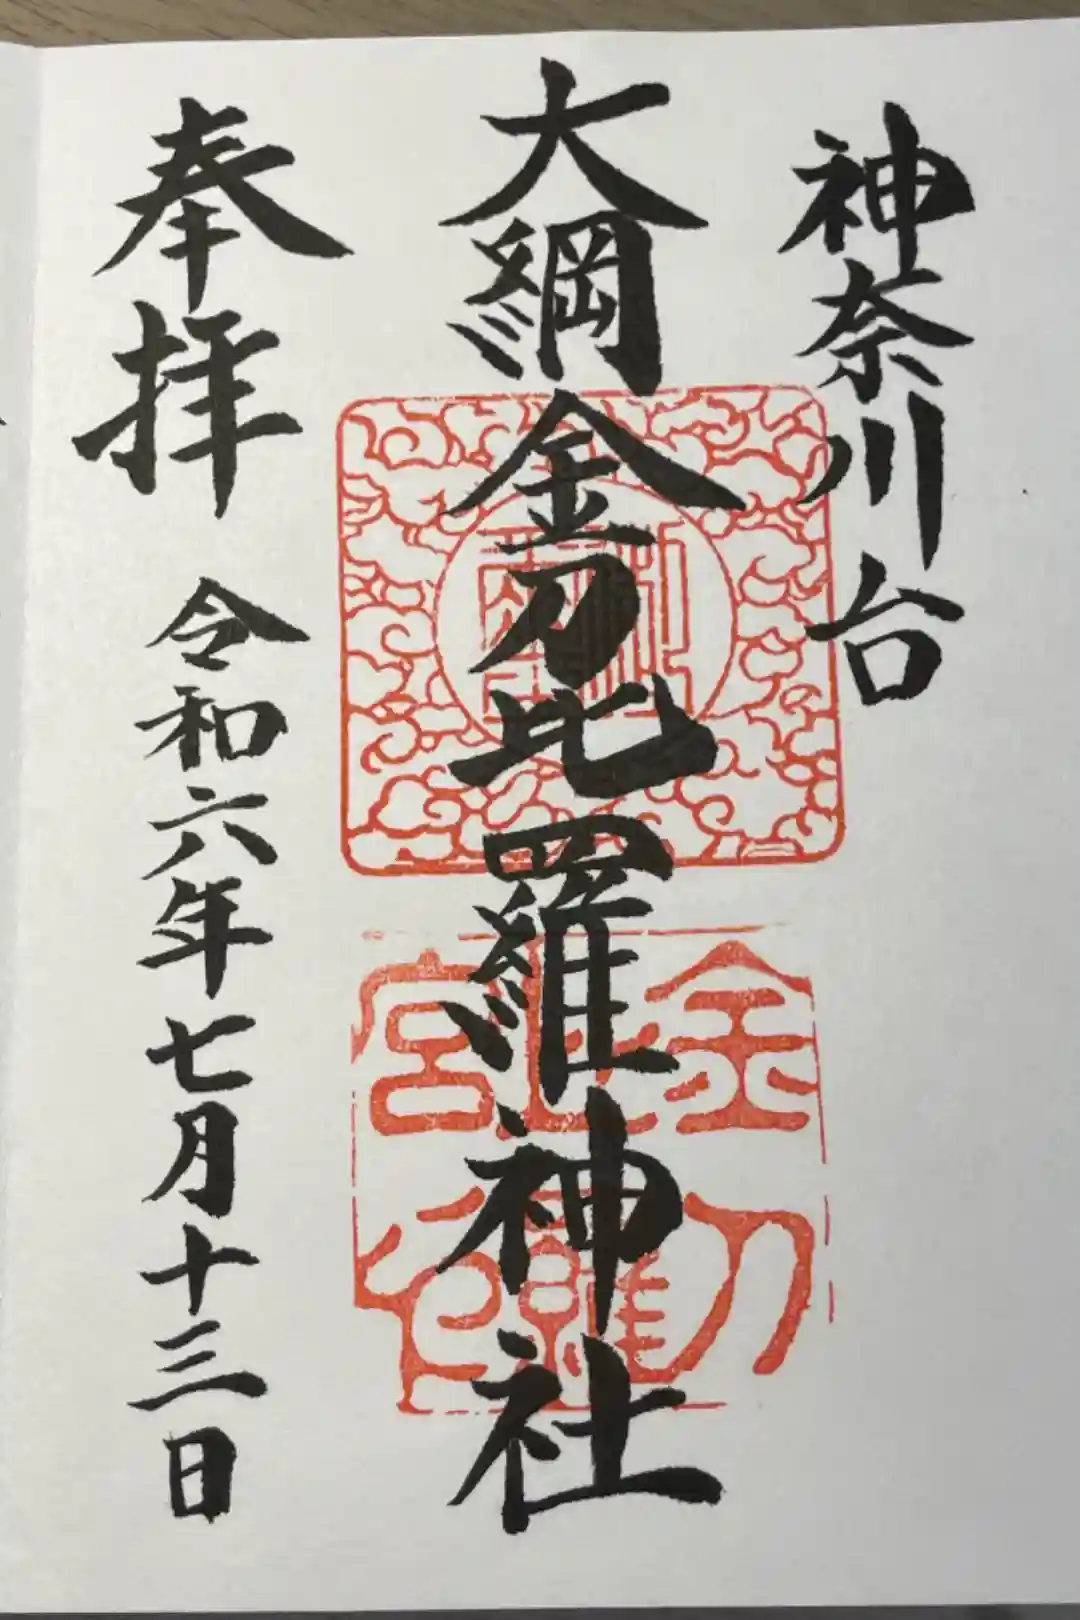 神奈川台
大綱金刀比羅神社
奉拝
令和六年七月十三日